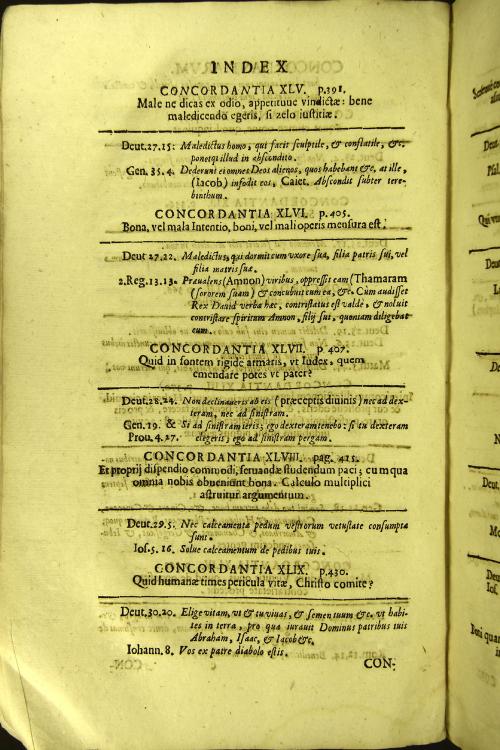 INDEX
CONCORDANTIA XLV. p.391.
Male ne dicas ex odio, appetituue vindictæ: bene
maledicendo egeris, si zelo iustitiæ.
Deut.27.15: Maledictus homo, qui facit sculptile, & conflatile, &c.
ponetq; illud in abscondito.
Gen. 35.4. Dederunt ei omnes Deos alienos, quos habebant &c, at ille,
(Iacob) infodit eos, Caiet. Abscondit subter tere-
binthum.
CONCORDANTIA XLVI. p.405.
Bona, vel mala Intentio, boni, vel mali operis mensura est.
Deut 27.22. Maledictus, qui dormit cum vxore sua, filia patris sui, vel
filia matris sua.
2.Reg.13.13. Præualens (Amnon) viribus, oppressit eam (Thamaram
(sororem suam) & concubuit cum ea, &c. Cùm audisset
Rex Dauid verba hæc, contristatus est valdè, & noluit
contristare spiritum Amnon, filij sui, quoniam diligebat
eum.
CONCORDANTIA XLVII. p 407.
Quid in fontem rigidè armaris, vt Iudex, quem
emendare potes vt pater?
Deut.28.14. Non declinaueris ab eis (præceptis diuinis) nec ad dex-
teram, nec ad sinistram.
Gen.19. & Si ad sinistram ieris; ego dexteram tenebo: si tu dexteram
Prou. 4.27. elegeris; ego ad sinistram pergam.
CONCORDANTIA XLVIII. pag. 415.
Et proprij dispendio commodi, seruandæ studendum paci; cum qua
omnia nobis obueniunt bona. Calculo multiplici
astruitur argumentum.
Deut.29.5. Nec calceamenta pedum vestrorum vetustate consumpta
sunt.
Ios.5.16. Solue calceamentum de pedibus tuis.
CONCORDANTIA XLIX. p.430.
Quid humanæ times pericula vitæ, Christo comite?
Deut.30.20. Elige vitam, vt & tu viuas, & semen tuum &c. vt habi-
tes in terra, pro qua iurauit Dominus patribus tuis
Abraham, Isaac, & Iacob &c.
Iohann. 8. Vos ex patre diabolo estis.
CON-